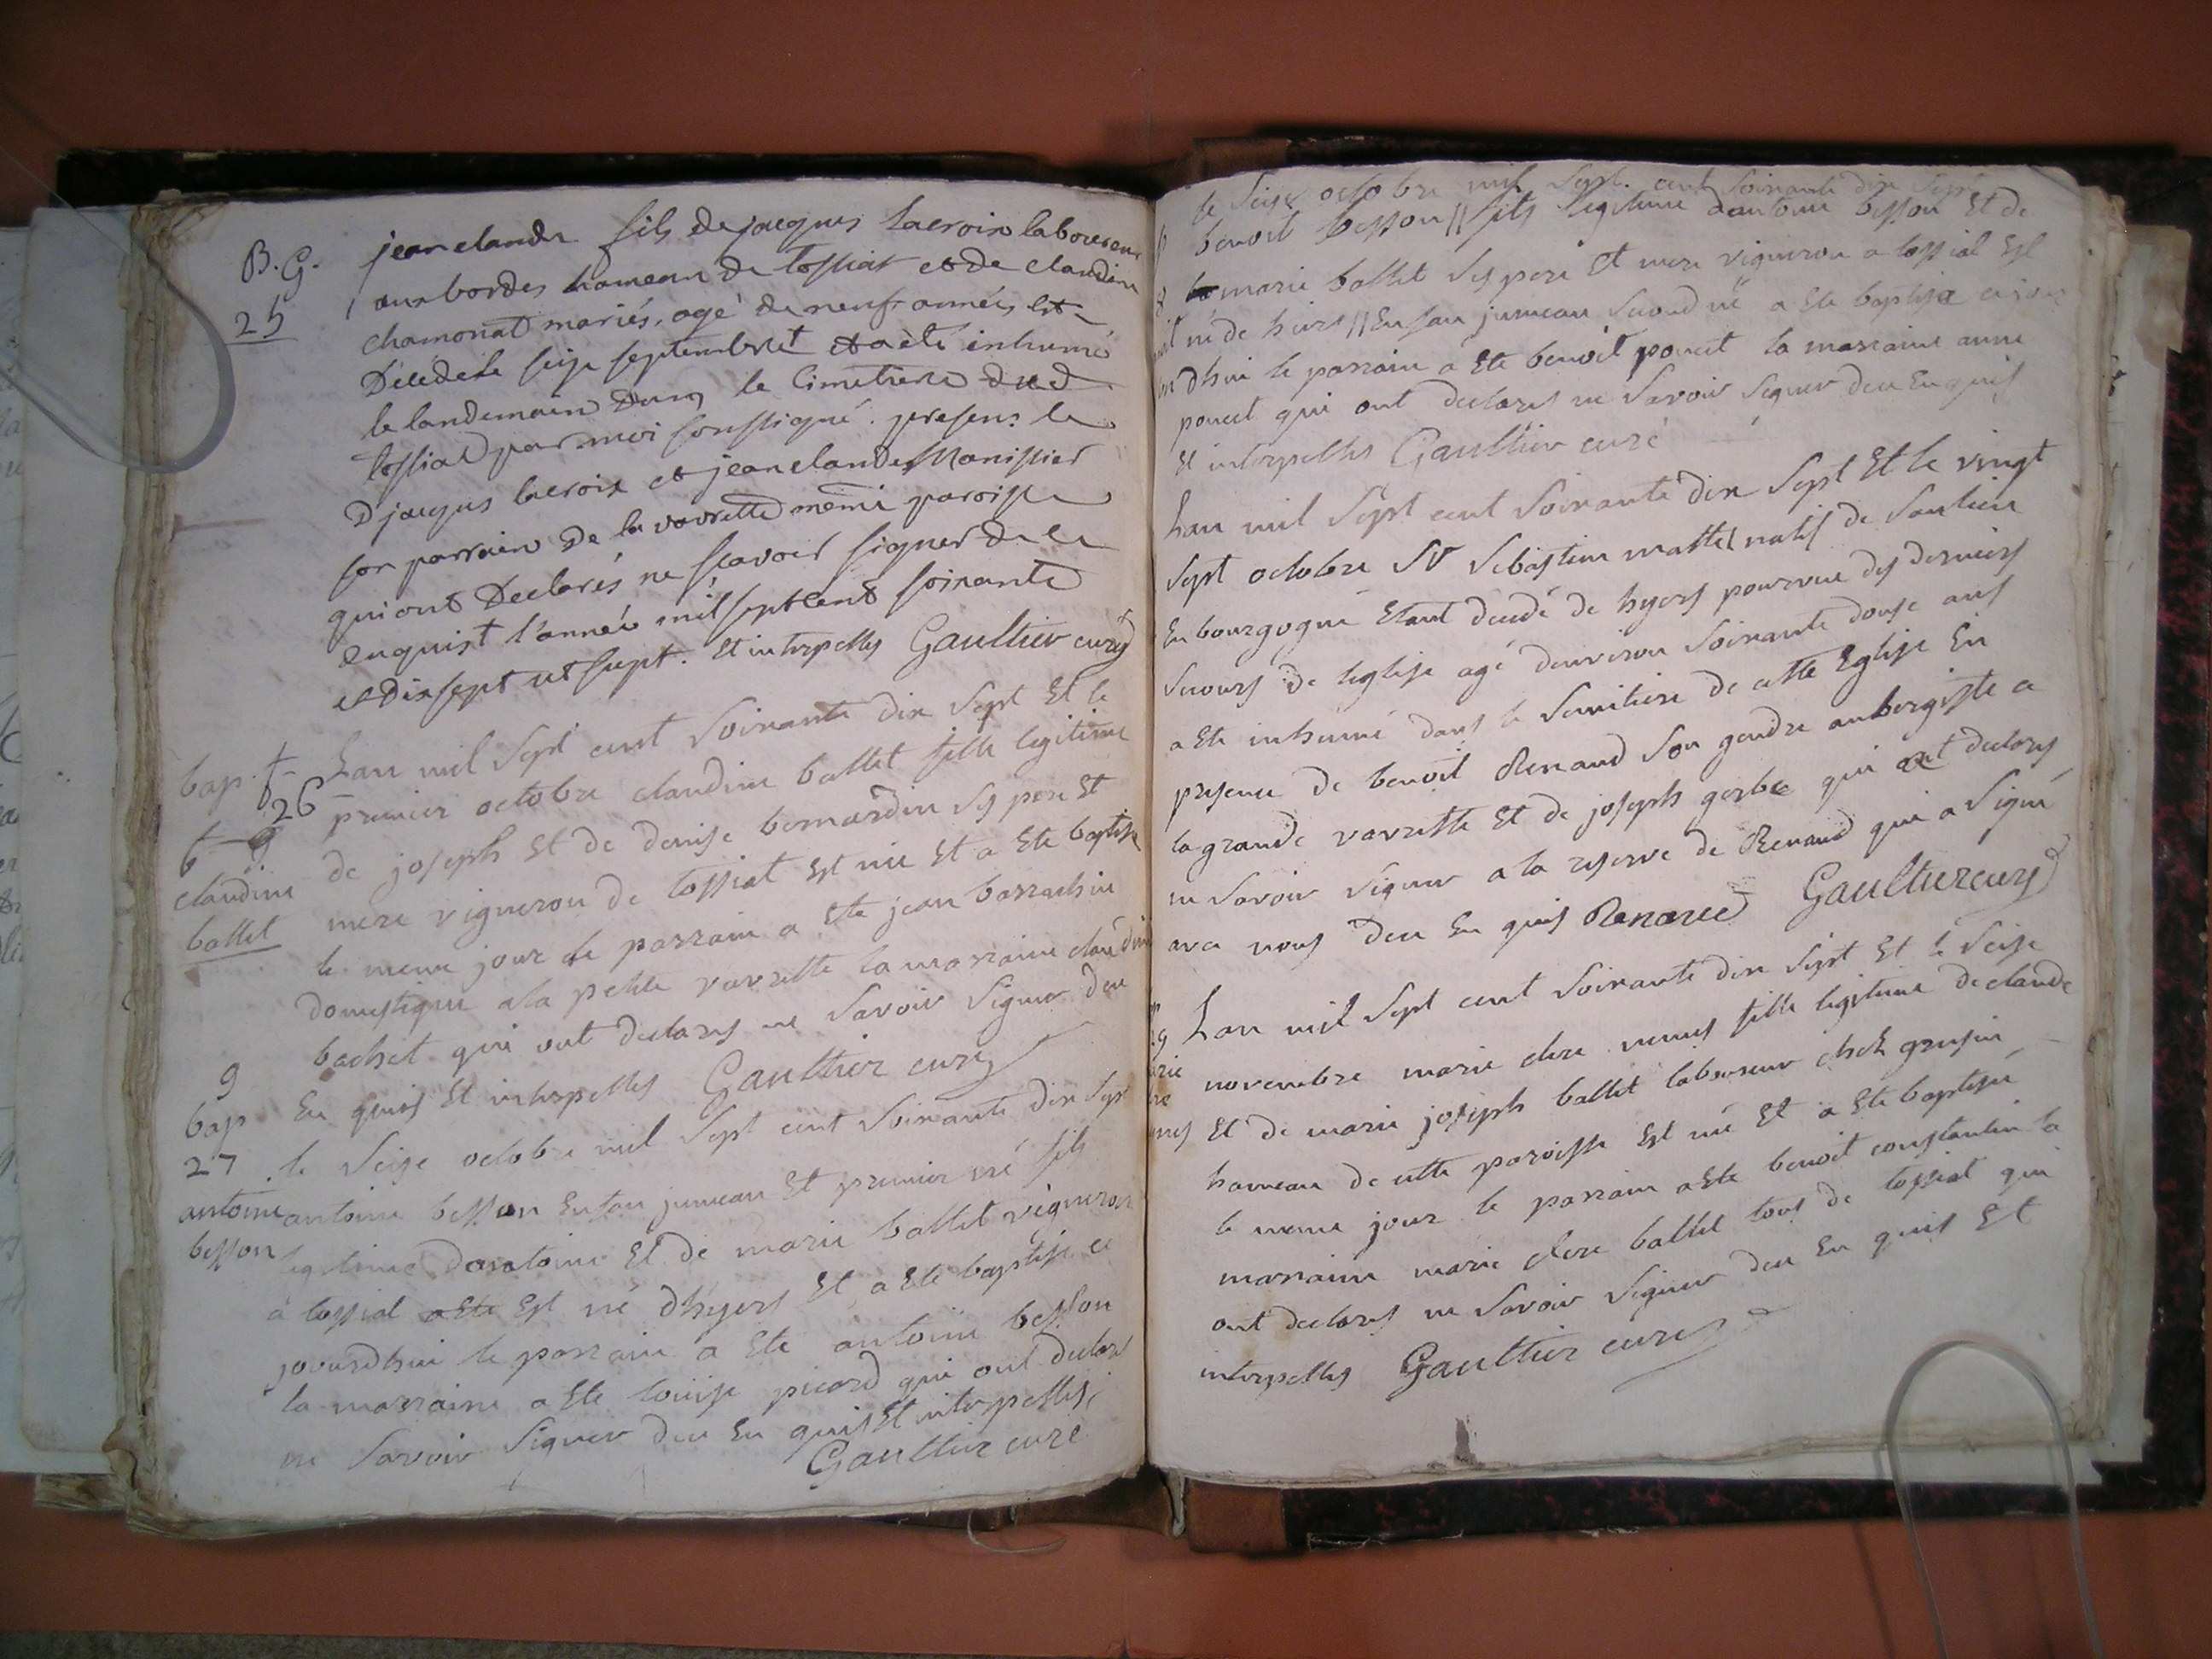 B. G.
25
jean claude fils de jacques Lacroix laboureur
aux bordes hameau de tossiat et de claudine
chamonat mariés, agé de neuf années est
Décédé le seize septembre et a été inhumé
le landemain dans le Cimetiere dud
tossiat par moi soussigné. presens le
D jacques lacroix et jean claude Manissier
son parrain de la vavrette même paroisse
qui ont Declarés ne scavoir signer de ce
enquis l'année mil sept cent soixante
et dix sept ut supt. Et interpellés Gaultier curé
bap. f
26
6 9
claudine
ballet
Lan mil Sept cent Soixante dix Sept Et le
premier octobre claudine ballet fille legitime
de joseph Et de denise bernardin Ses pere Et
mere vigneron de tossiat Est née Et a Ete baptisé
le meme jour le parrain a Ete jean barrachin
domestique a la petite vavrette la marraine claudine
bachet qui ont declarés ne Savoir Signer deu
En quis Et interpellés Gaultier curé
9
bap
27
antoine
besson
le Seise octobre mil Sept cent Soixante dix Sept
antoine besson Enfan jumeau Et premier né fils
legitime dantoine Et de marie ballet vigneron
à tossiat a Ete Est né dhyers Et a Ete baptisé ce
jourdhui le parrain a Ete antoine besson
la marraine a Ete louise picard qui ont declaré
ne Savoir Signer deu En quis Et interpellés
Gaultier curé
le Seise octobre mil Sept. cent Soixante dix Sept
benoit besson // fils legitime dantoine besson Et de
marie ballet Ses pere Et mere vigneron a tossiat Est
né de hiers // Enfan jumeau Second né a Ete baptisé ce jour
dhui le parrain a Ete benoit poncet la marraine anne
poncet qui ont declarés ne Savoir Signer deu Enquis
Et interpellés Gaultier curé
Lan mil Sept cent Soixante dix Sept Et le vingt
Sept octobre Sr Sebastien mattel natif de Saulieu
En bourgogne Etant décédé de hyers pourvue des derniers
Secours de leglise agé denviron Soixante douse ans
a Ete inhumé dans le Semitiere de cette Eglise En
presence de benoit Renaud Son gendre aubergiste a
la grande vavrette Et de joseph gerbe qui ont declarés
ne Savoir Signer a la reserve de Renaud qui a Signé
avec nous deu En quis Renaud Gaultier curé
Lan mil Sept cent Soixante dix Sept Et le Seise
novembre marie clere fille legitime de claude
Et de marie joseph ballet laboureur chez grusin
hameau de cette paroisse Est née Et a Ete baptisée
le meme jour le parrain a Ete benoit constantin la
marraine marie clere ballet tous de tossiat qui
ont declarés ne Savoir Signer deu En quis Et
interpellés Gaultier curé